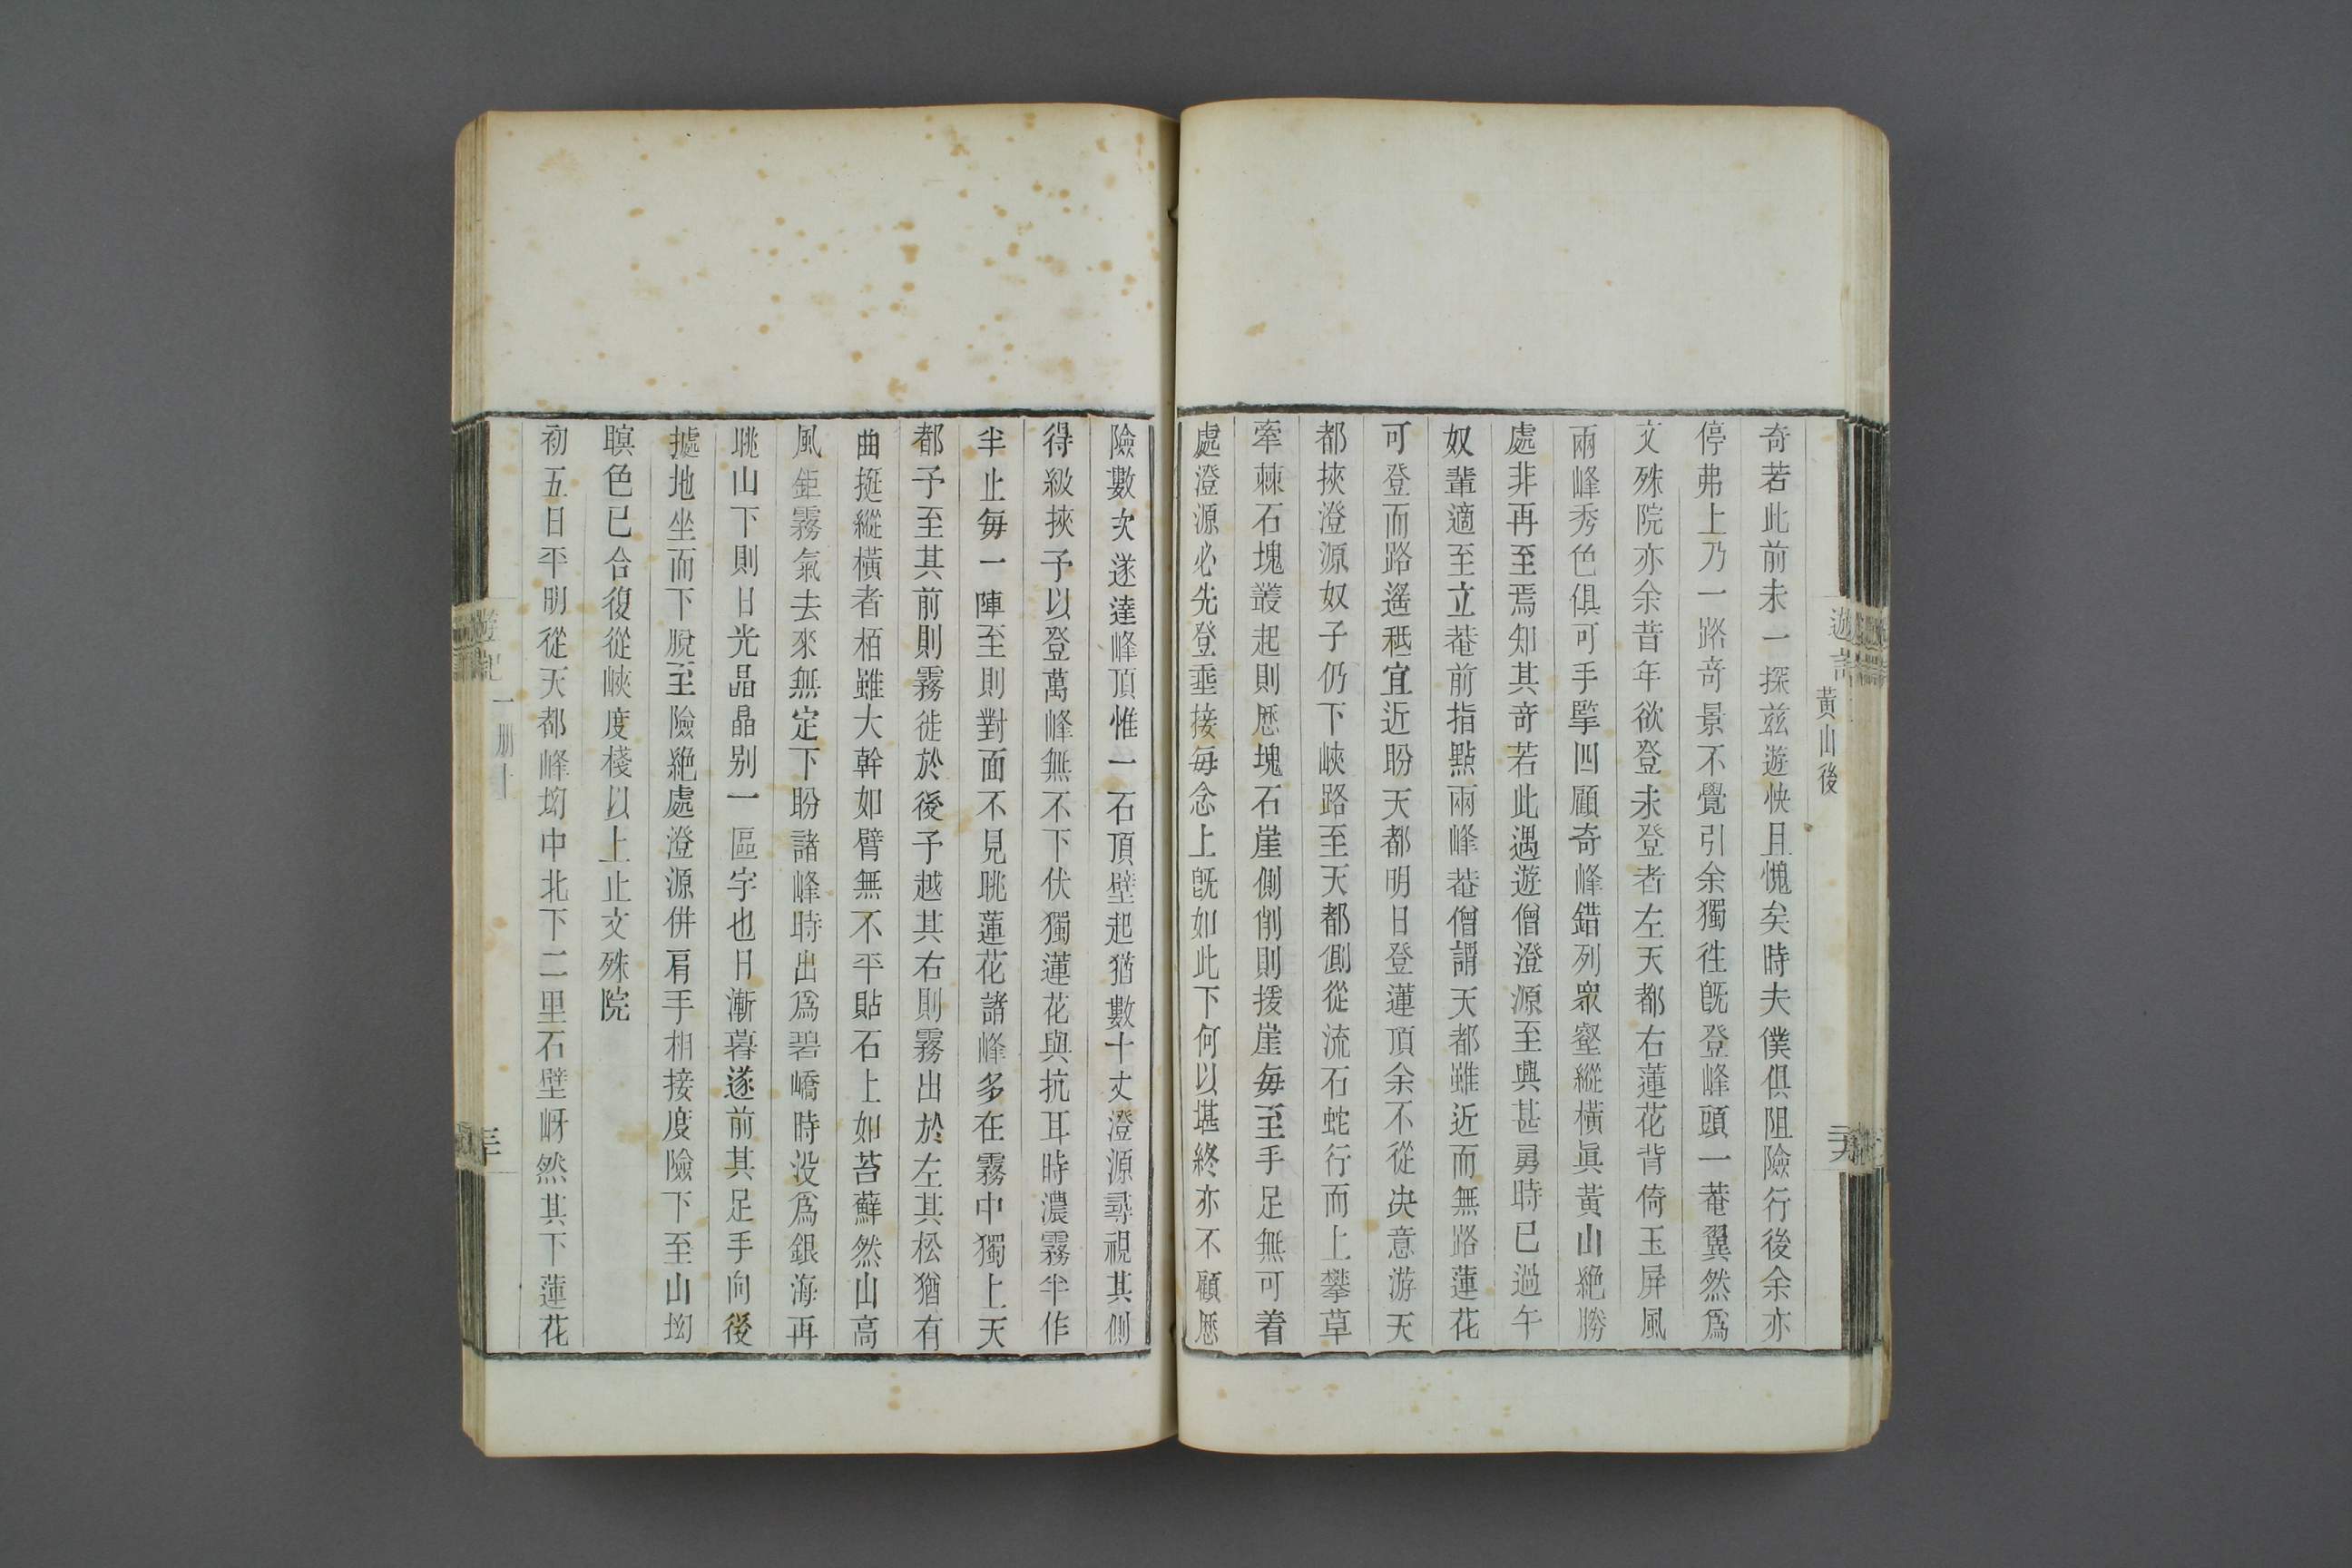 黄山後
奇若此前未一探茲遊快且愧矣時夫僕俱阻險行後余亦
停弗上乃一路奇景不覺引余獨徃旣登峰頭一菴翼然爲
文殊院亦余昔年欲登未登者左天都右蓮花背倚玉屏風
兩峰秀色俱可手擥四顧奇峰錯列衆壑縱橫眞黃山絶勝
處非再至焉知其奇若此遇遊僧澄源至興甚勇時已過午
奴輩適至立菴前指點兩峰菴僧謂天都雖近而無路蓮花
可登而路遙秪宜近盼天都明日登蓮頂余不從决意游天
都挾澄源奴子仍下峽路至天都側從流石蛇行而上攀草
牽棘石塊叢起則歷塊石崖側削則援崖每至手足無可着
處澄源必先登垂接每念上旣如此下何以堪終亦不顧歷
險數次遂達峰頂惟一石頂壁起猶數十丈澄源尋視其側
得級挾予以登萬峰無不下伏獨蓮花與抗耳時濃霧半作
半止每一陣至則對面不見眺蓮花諸峰多在霧中獨上天
都予至其前則霧徙於後予越其右則霧出於左其松猶有
曲挺縱橫者栢雖大幹如臂無不平貼石上如苔蘚然山高
風鉅霧氣去來無定下盼諸峰時出爲碧嶠時没爲銀海再
眺山下則日光晶晶别一區宇也日漸暮遂前其足手向後
據地坐而下脫至險絶處澄源併肩手相接度險下至山坳
暝色已合復從峽度棧以上止文殊院
初五日平明從天都峰坳中北下二里石壁岈然其下蓮花